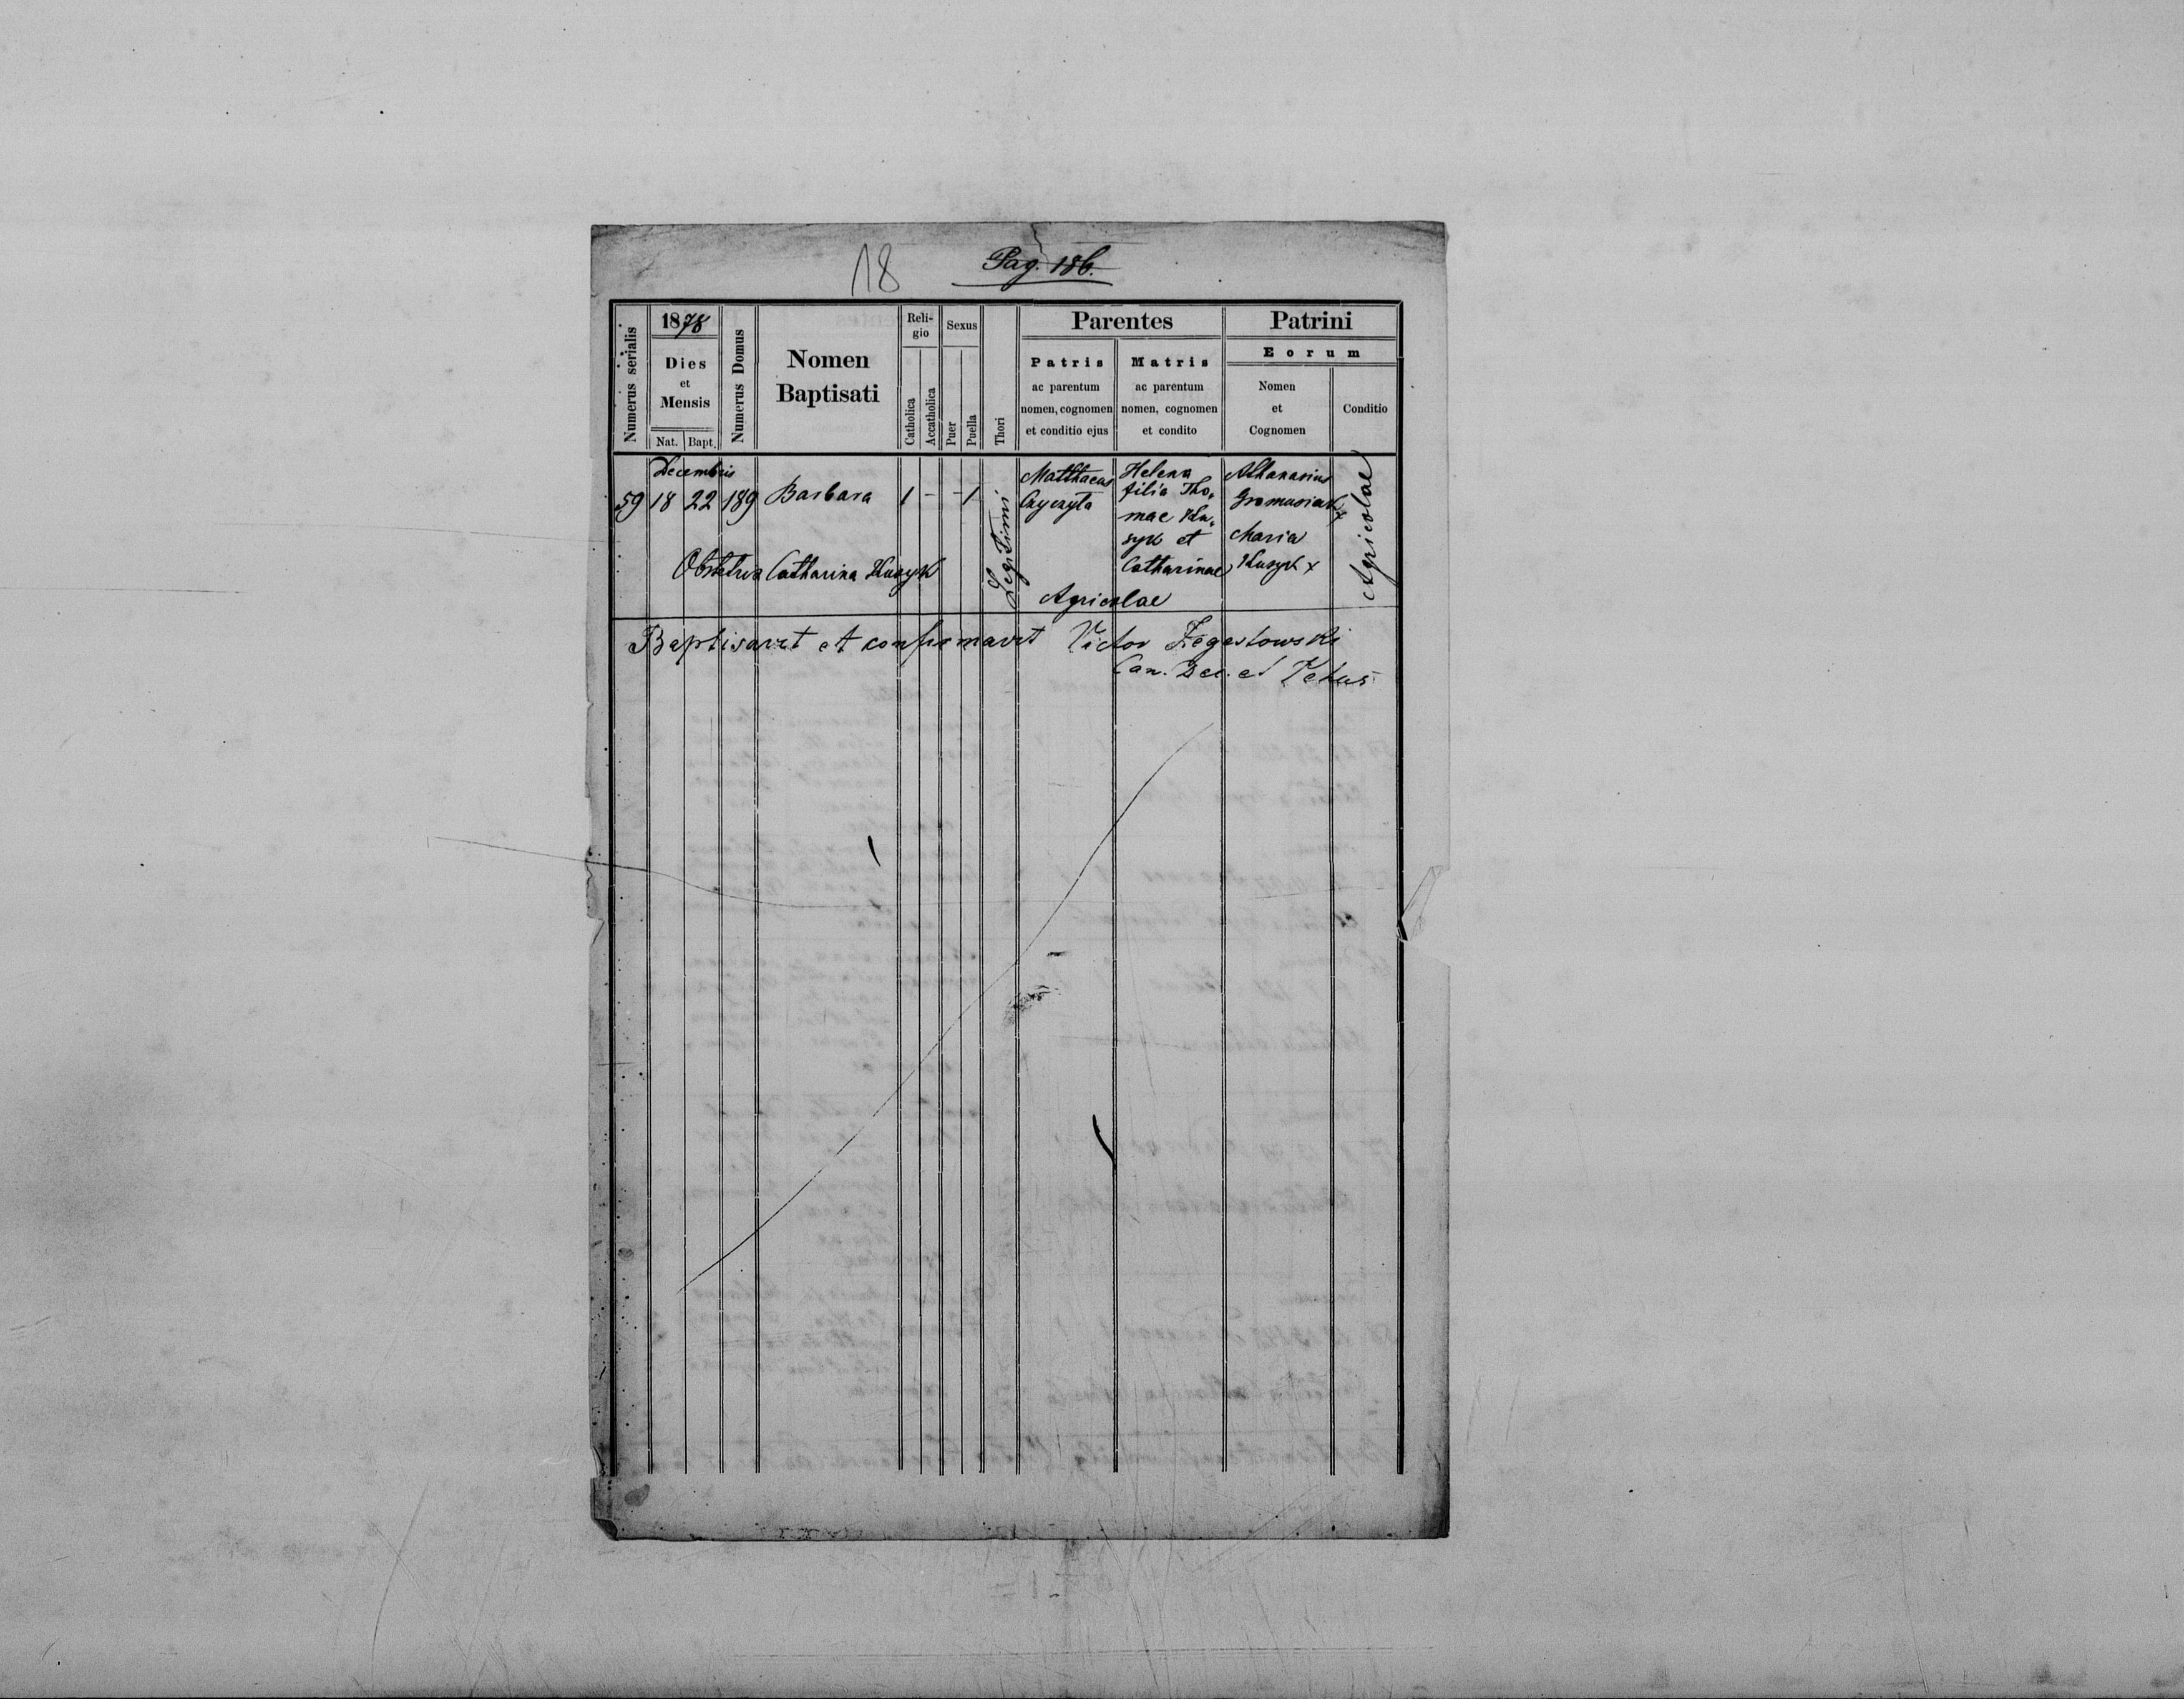 18 Pag. 186.
Numerus serialis
1878
Dies
et
Mensis
Nat. Bapt.
Numerus Domus
Nomen
Baptisati
Reli-
gio
Catholica
Accatholica
Sexus
Puer
Puella
Thori
Parentes
Patris
ac parentum
nomen, cognomen
et conditio ejus
Matris
ac parentum
nomen, cognomen
et condito
Patrini
Eorum
Nomen
et
Cognomen
Conditio
Decembris
59 18 22 189 Barbara 1 - - 1
Legitimi
Matthaeus
Helena
filia Tho„
mae Ku„
syk et
Catharinae
Agricolae
Athanasius
Gromusiak x
Maria
Kusyk x
Agricolae
Obstetrix Catharina Kusyk
Baptisavit et confirmavit Victor Żegestowski
Can. Dec. et